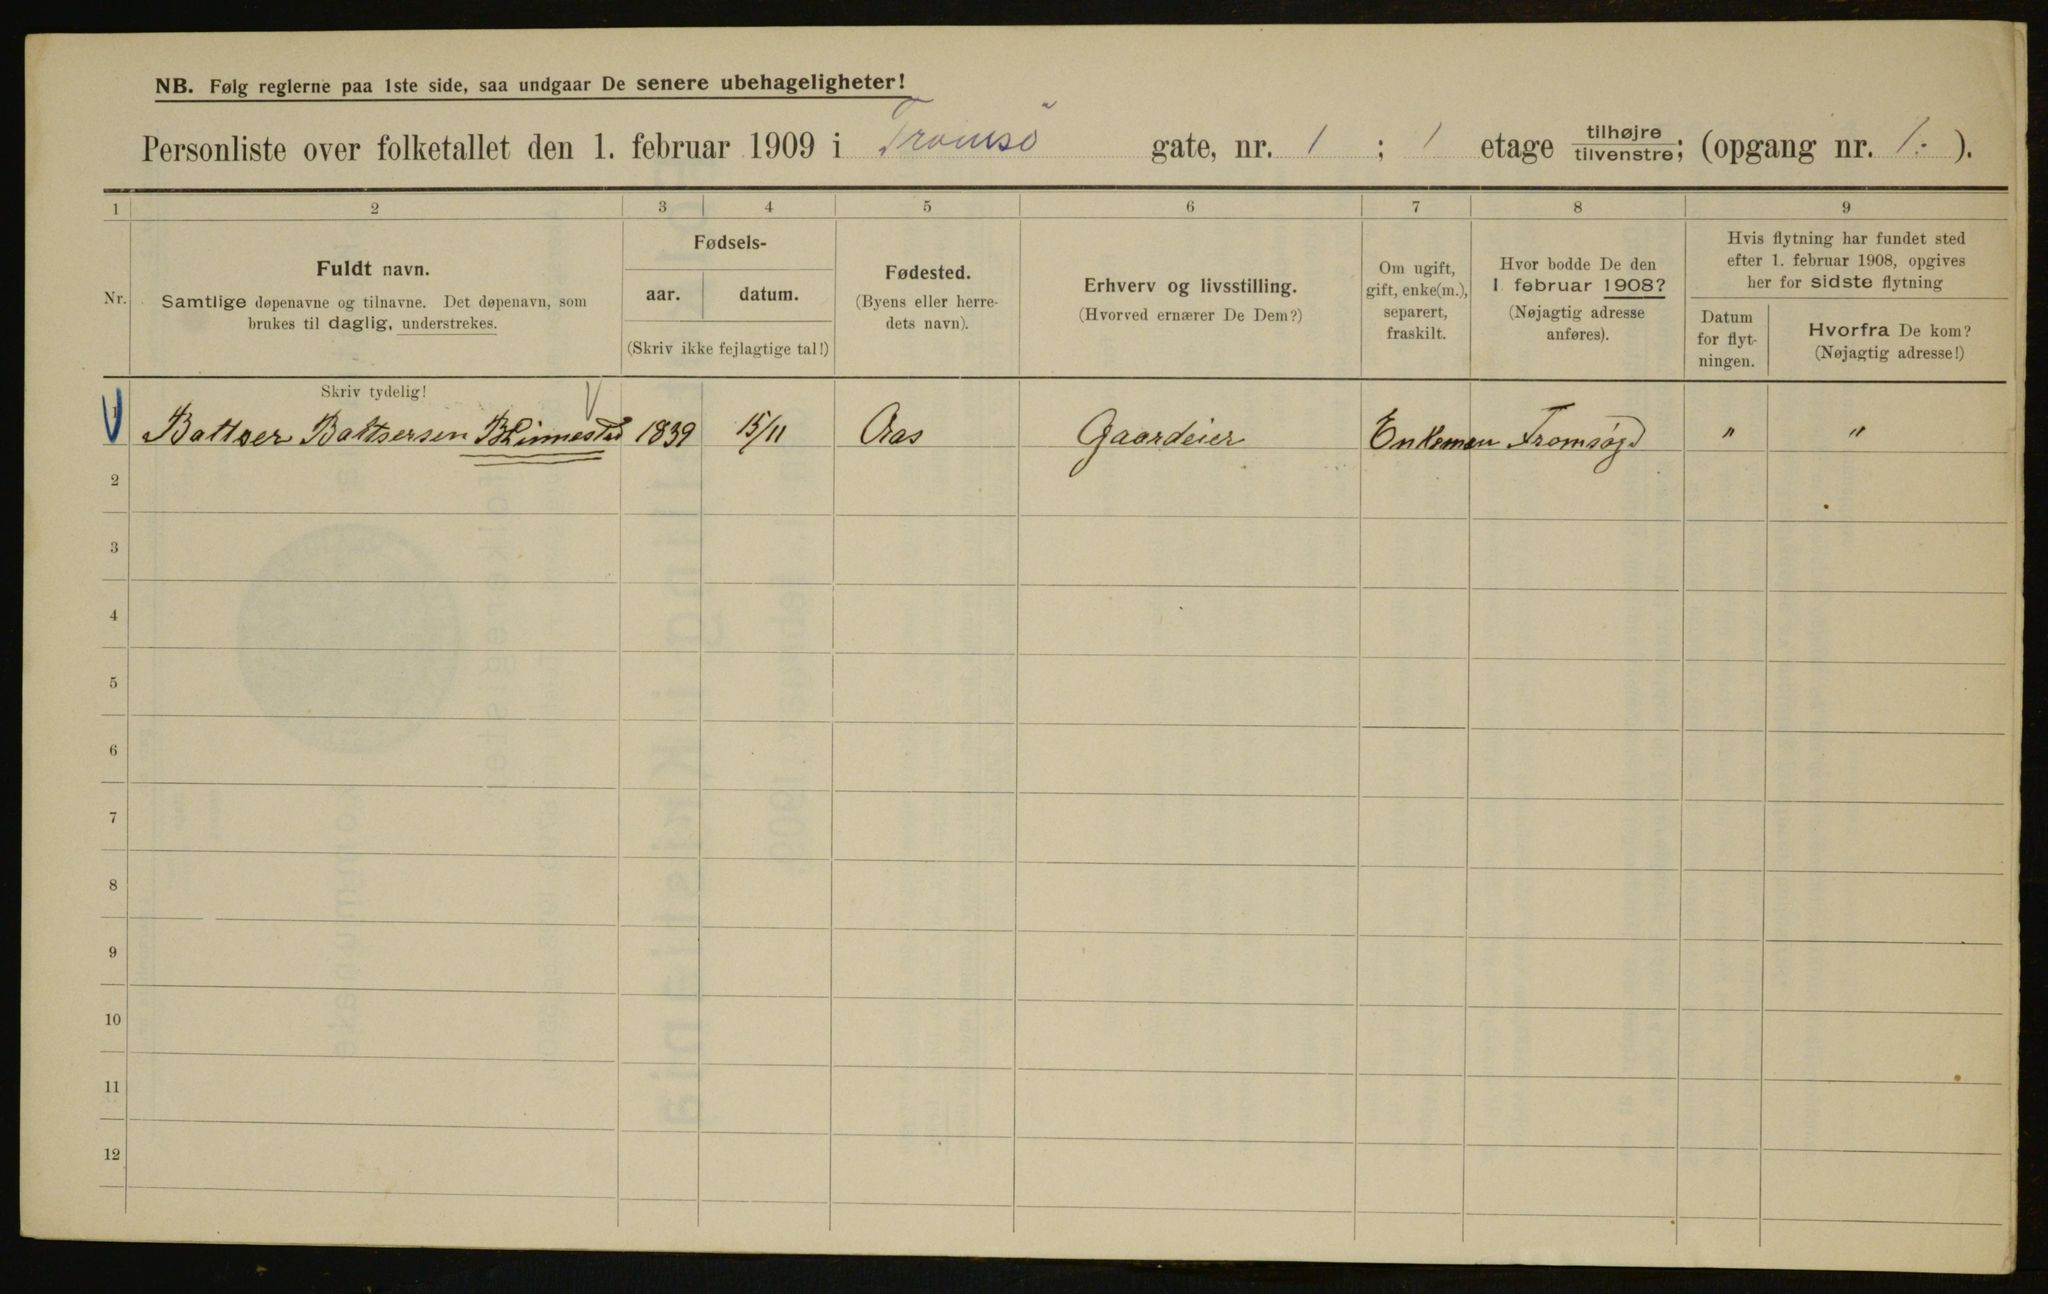 NB. Følg reglerne paa 1ste side, saa undgaar De senere ubehageligheter!
Personliste over folketallet den 1. februar 1909 i Tromsö gate, nr. 1 ; 1 etage tilhøjre/tilvenstre; (opgang nr. 1.- ).
1 2 3 4 5 6 7 8 9
Nr.
Fuldt navn.
Samtlige døpenavne og tilnavne. Det døpenavn, som
brukes til daglig, understrekes.
Fødsels-
aar. datum.
(Skriv ikke fejlagtige tal!)
Fødested.
(Byens eller herre-
dets navn).
Erhverv og livsstilling.
(Hvorved ernærer De Dem?)
Om ugift,
gift, enke(m.),
separert,
fraskilt.
Hvor bodde De den
1 februar 1908?
(Nøjagtig adresse
anføres).
Hvis flytning har fundet sted
efter 1. februar 1908, opgives
her for sidste flytning
Datum
for flyt-
ningen.
Hvorfra De kom?
(Nøjagtig adresse!)
Skriv tydelig!
1 Baltser Baltsersen 1839 15/11 Aas Gaardeier Enkeman Tromsøgd " "
2
3
4
5
6
7
8
9
10
11
12